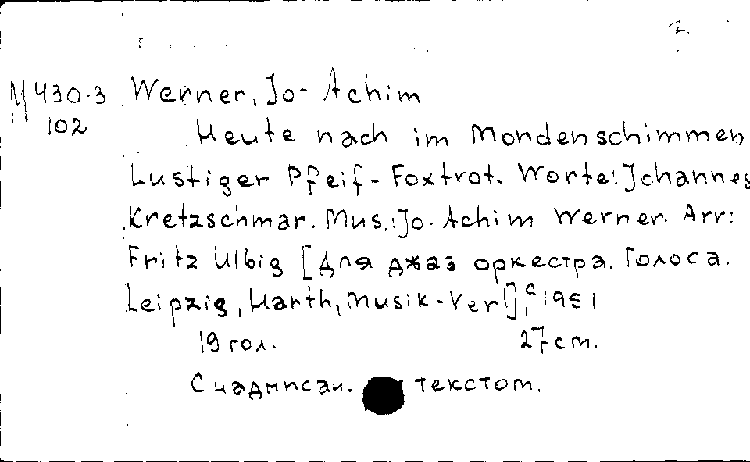 М 430-3 Werner, Jo-Achim
102
Heute nach im Mondenschimmen
Lustiger Pfeif-Foxtrot. Worte: Johannes
Kretzschmar. Mus.: Jo-Achim Werner. Arr:
Fritz Ulbig [Для джаз оркестра. Голоса.
Leipzig, Harth, Musik-Verl], c 1951
19 гол. 27 cm.
С надписан. текстом.